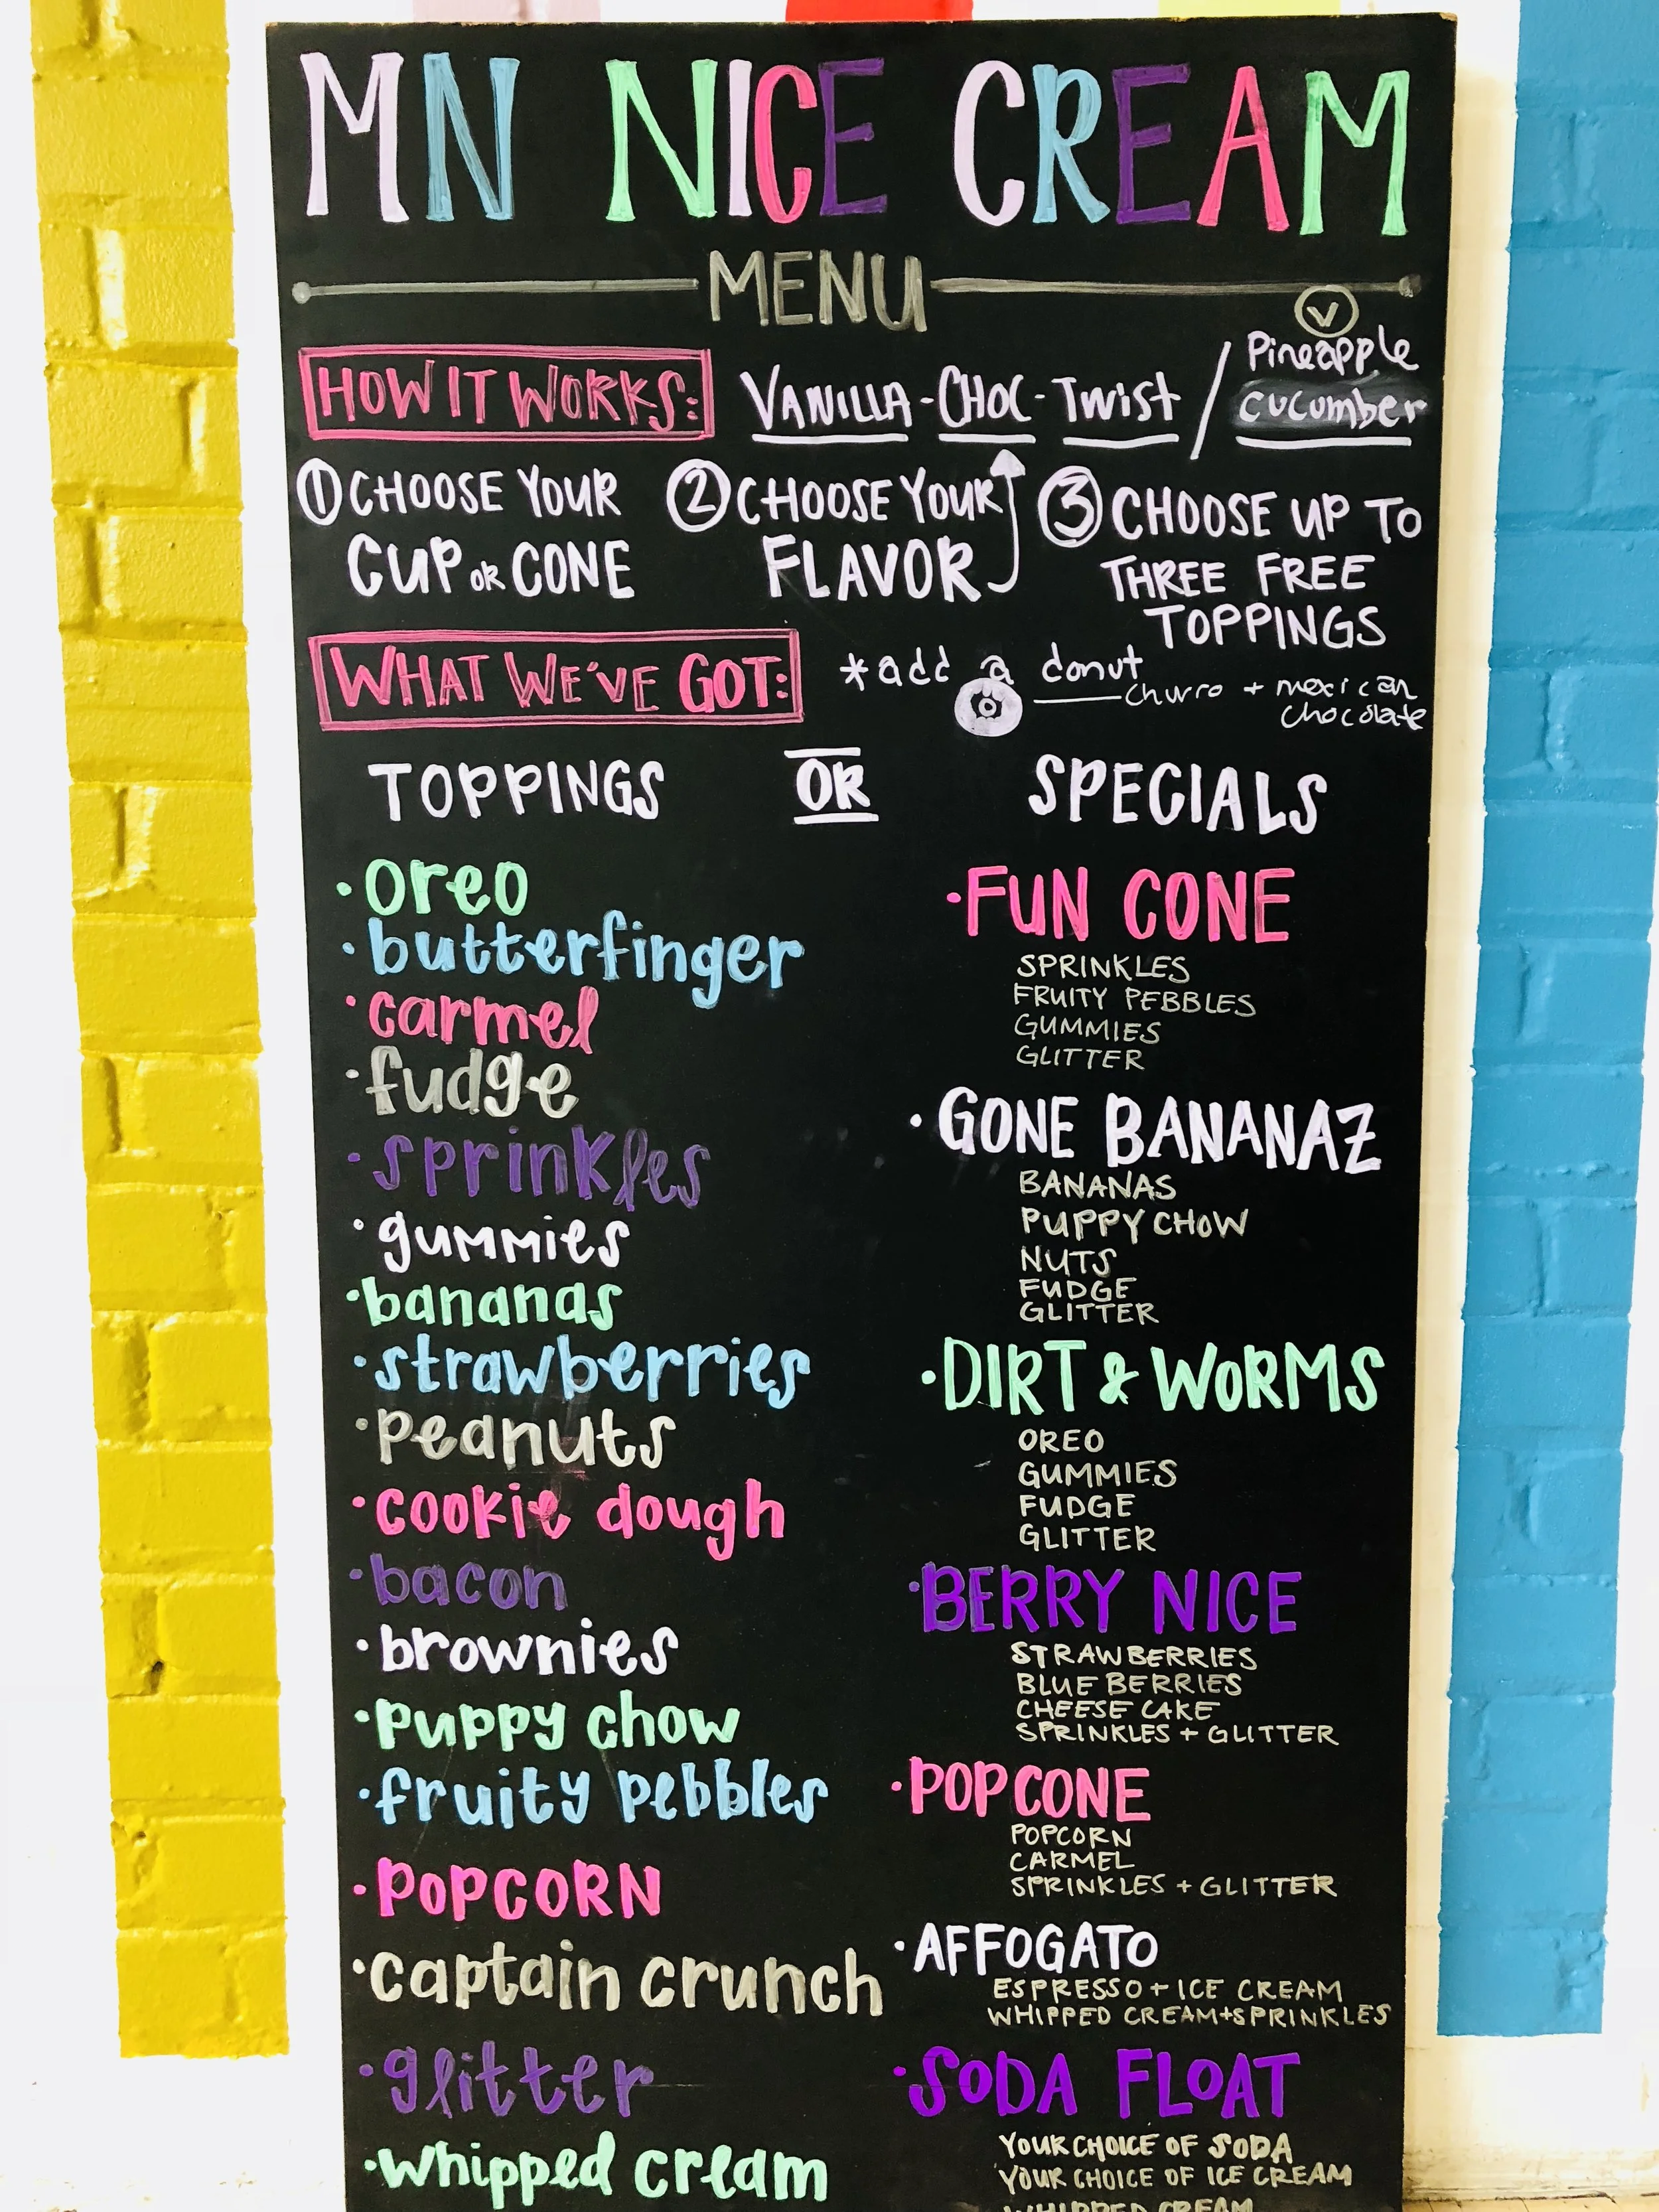 MN NICE CREAM
MENU
V
HOW IT WORKS:
VANILLA - CHOC - TWIST /
Pineapple
cucumber
1 CHOOSE YOUR
CUP OR CONE
2 CHOOSE YOUR
FLAVOR
3 CHOOSE UP TO
THREE FREE
TOPPINGS
WHAT WE'VE GOT:
*add a donut
churro + mexican
chocolate
TOPPINGS
OR
SPECIALS
· oreo
· butterfinger
· carmel
· fudge
· sprinkles
· gummies
· bananas
· strawberries
· peanuts
· cookie dough
· bacon
· brownies
· puppy chow
· fruity pebbles
· POPCORN
· captain crunch
· glitter
· whipped cream
· FUN CONE
SPRINKLES
FRUITY PEBBLES
GUMMIES
GLITTER
· GONE BANANAZ
BANANAS
PUPPY CHOW
NUTS
FUDGE
GLITTER
· DIRT & WORMS
OREO
GUMMIES
FUDGE
GLITTER
· BERRY NICE
STRAWBERRIES
BLUE BERRIES
CHEESE CAKE
SPRINKLES + GLITTER
· POP CONE
POPCORN
CARMEL
SPRINKLES + GLITTER
· AFFOGATO
ESPRESSO + ICE CREAM
WHIPPED CREAM+SPRINKLES
· SODA FLOAT
YOUR CHOICE OF SODA
YOUR CHOICE OF ICE CREAM
WHIPPED CREAM